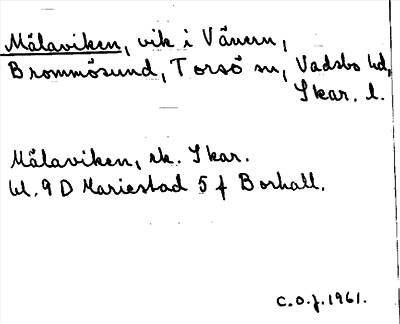 Målaviken, vik i Vänern,
Brommösund, Torsö sn, Vadsbo hd,
Skar. l.
Målaviken, ek. Skar.
bl. 9 D Mariestad 5 f Borhall.
C.O.J. 1961.